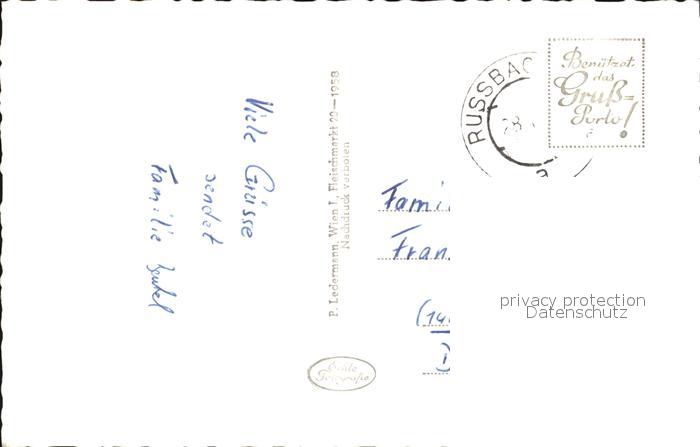 Viele Grüsse
sendet
Familie
P. Ledermann, Wien I., Fleischmarkt 20—1958
Nachdruck verboten
Echte
Fotografie
RUSSBAC
28.
a
Benützet
das
Gruß=
Porto!
Fami
Fran
(14
(
privacy protection
Datenschutz